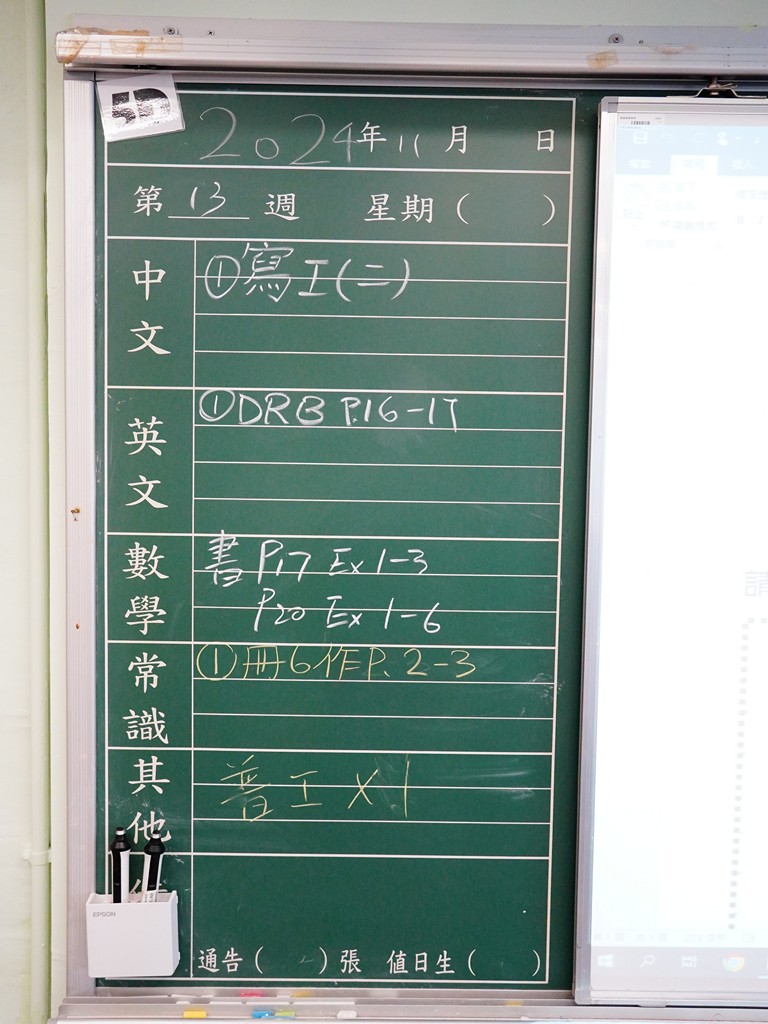 5D
2024年11月 日
第 13 週 星期( )
中文
①寫工(二)
英文
①DRB P.16-17
數學
書 P17 Ex 1-3
P20 Ex 1-6
常識
①冊6作P.2-3
其他
普工 X 1
EPSON
通告( )張 值日生( )
請